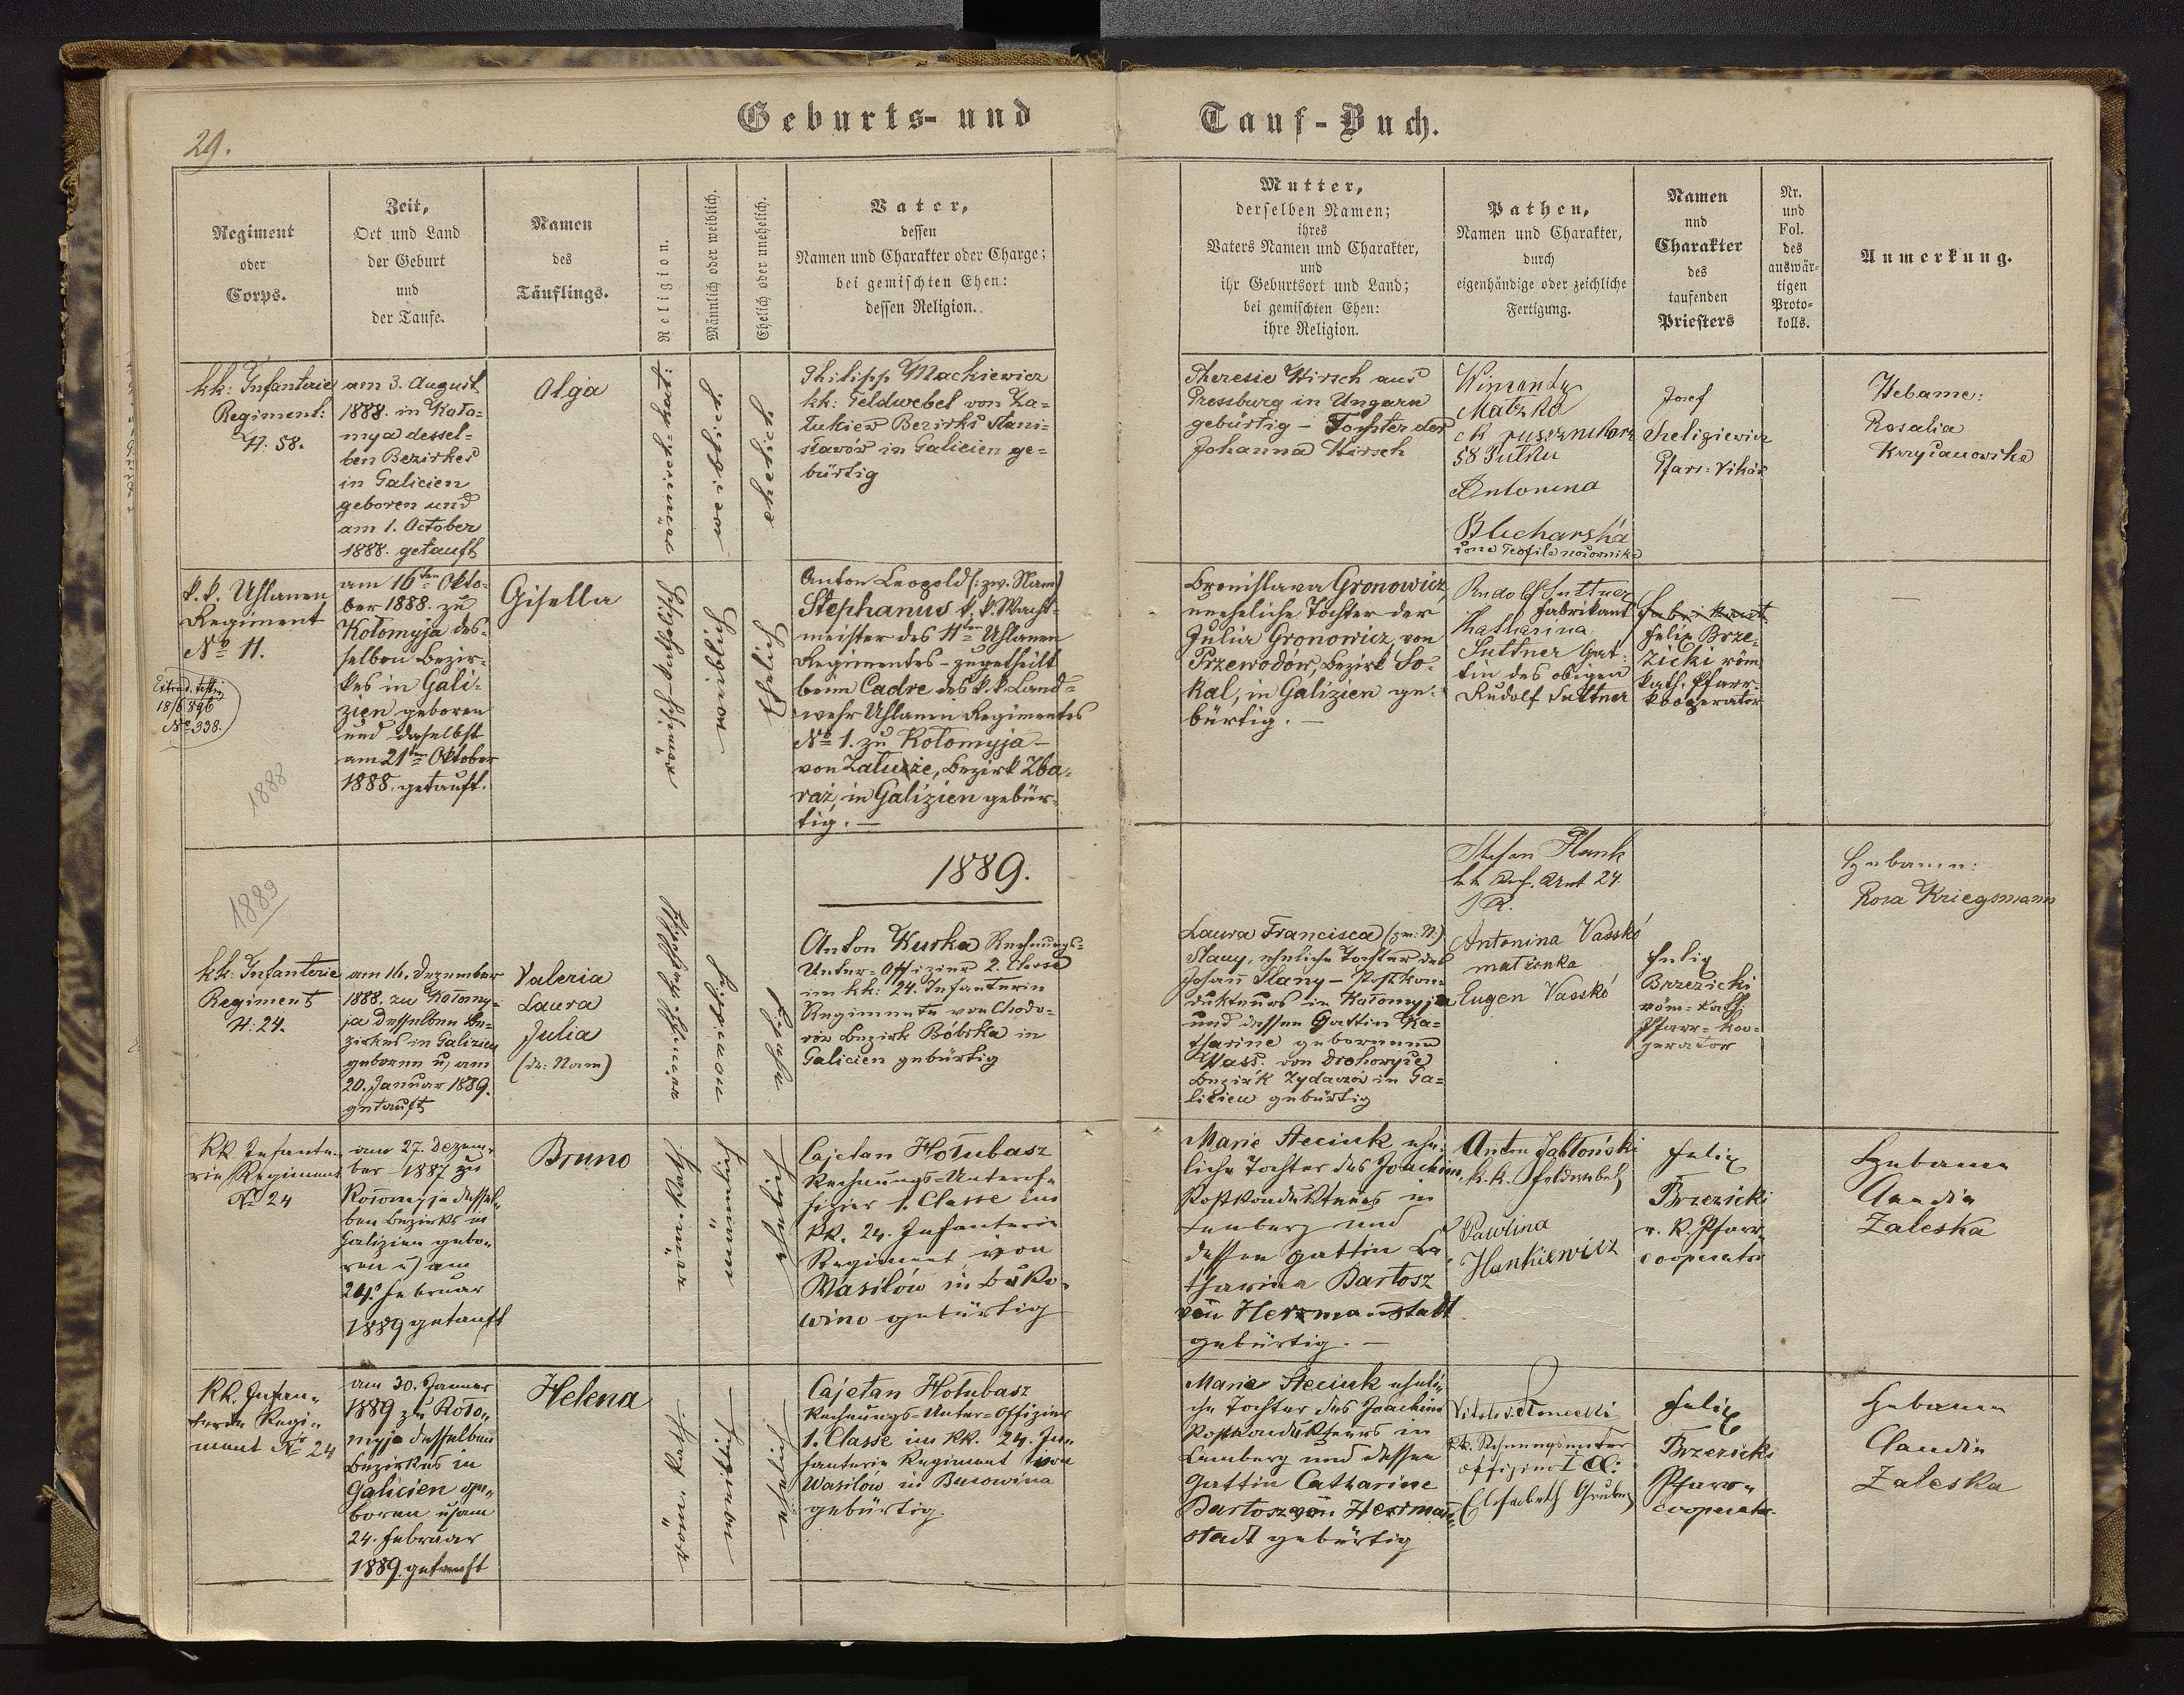 Geburts- und
Tauf-Buch.
29.
Regiment
oder
Corps.
Zeit,
Ort und Land
der Geburt
und
der Taufe.
Namen
des
Täuflings.
Religion.
Männlich oder weiblich.
Ehelich oder unehelich.
Vater,
dessen
Namen und Charakter oder Charge;
bei gemischten Ehen:
dessen Religion.
Mutter,
derselben Namen;
ihres
Vaters Namen und Charakter,
und
ihr Geburtsort und Land;
bei gemischten Ehen:
ihre Religion.
Pathen,
Namen und Charakter,
durch
eigenhändige oder zeichliche
Fertigung.
Namen
und
Charakter
des
taufenden
Priesters
Nr.
und
Fol.
des
auswär-
tigen
Proto-
kolls.
Anmerkung.
kk: Infanterie
Regiment:
N: 58.
am 3. August
1888. in Koło=
mya dessel=
ben Bezirkes
in Galicien
geboren und
am 1. October
1888. getauft
Olga
weiblich
ehelich
Philipp Mackiewicz
kk: Feldwebel von Za=
łukiew Bezirks Stani=
sławów in Galicien ge=
bürtig
Theresie Hirsch aus
Pressburg in Ungarn
gebürtig – Tochter der
Johanna Hirsch
Matzko
58 Pułku
Antonina
Blucharska
żona Teofila
Josef
Pfarr: Vikar
Hebame:
Rosalia
Krzyżanowska
k. k. Uhlanen
Regiment
No 11.
18/6 896
No 338.
1888
am 16ten Okto-
ber 1888. zu
Kołomyja des-
selben Bezir-
kes in Gali-
zien geboren
und daselbst
am 21ten Oktober
1888. getauft.
Gisella
Ehelich
Anton Leopold (: zw. Nam)
Stephanus k. k. Wacht-
meister des 11ten Uhlanen
Regimentes – zugetheilt
beim Cadre des k. k. Land=
wehr Uhlanen Regimentes
No 1. zu Kołomyja –
von Załuże, Bezirk Zba-
raż, in Galizien gebür-
tig. –
Bronislava Gronowicz,
uneheliche Tochter der
Julia Gronowicz, von
Przewodów, Bezirk So-
kal, in Galizien ge-
bürtig. –
Rudolf Suttner
Fabrikant
Katharina
Suttner Gat-
tin des obigen
Rudolf Suttner
Fabrikant
Felix Brze-
zicki röm
kath. Pfarr-
kooperator
–
1889.
1889
kk: Infanterie
Regiment
N: 24.
am 16. Dezember
1888. zu Kołomy=
ja desselben Be-
zirkes in Galizien
geboren u. am
20. Januar 1889.
getauft
Valeria
Laura
Julia
(dr: Nam)
Anton Kurka Rechnungs-
Unter-Offizier 2. Classe
im kk: 24. Infanterie
Regimente von Chodo-
rów Bezirk Bóbrka in
Galicien gebürtig
Laura Francisca (zw: N.)
Slany, eheliche Tochter des
Johann Slany – Postkon-
dukteurs in Kołomyja
und dessen Gattin Ka=
tharine geborenen
Wass. von Drohowyże
Bezirk Zydaczów in Ga=
licien gebürtig
Stefan Plank
24.
Antonina Vasskó
matżonka
Eugen Vasskó
Felix
Brzezicki
röm-kath
Pfarr-koo-
perator
Hebame:
Rosa Kriegsmann
KK. Infante-
rie Regiment
No 24
am 27. Dezem-
ber 1887 zu
Kołomyja dessel-
ben Bezirks in
Galizien gebo-
ren u. am
24. Februar
1889 getauft
Bruno
Cajetan Hołubasz
Rechnungs-Unterof-
fizier 1. Classe im
KK. 24. Infanterie
Regiment von
Wasilów in Buko-
wina gebürtig
Marie Steciuk ehe-
liche Tochter des Joachim,
Postkondukteurs in
Lemberg und
dessen Gattin Ca
tharina Bartosz
von Hermanstadt
gebürtig. –
Anton Jabłoński
k. k. Feldwebel
Pawlina
Hankiewicz
Felix
Brzezicki
r. k. Pfarr-
cooperator
Hebame
Claudia
Zaleska
KK. Infan-
terie Regi-
ment No 24
am 30. Januar
1889 zu Koło-
myja desselben
Bezirkes in
Galicien ge-
boren u. am
24. Februar
1889. getauft
Helena
ehelich
Cajetan Hołubasz
Rechnungs-Unter-Offizier
1. Classe im KK. 24. In-
fanterie Regiment von
Wasilów in Bucowina
gebürtig.
Marie Steciuk eheli-
che Tochter des Joachim
Postkondukteurs in
Lemberg und dessen
Gattin Catharine
Bartosz von Herman-
stadt gebürtig
kk. Rechnungsunter
offizier I Cl:
Elisabeth Gruber
Felix
Brzezicki
Pfarr-
cooperator.
Hebame
Claudia
Zaleska